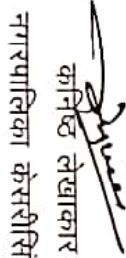 कनिष्ठ लेखाकार
नगरपालिका केसरीसिं